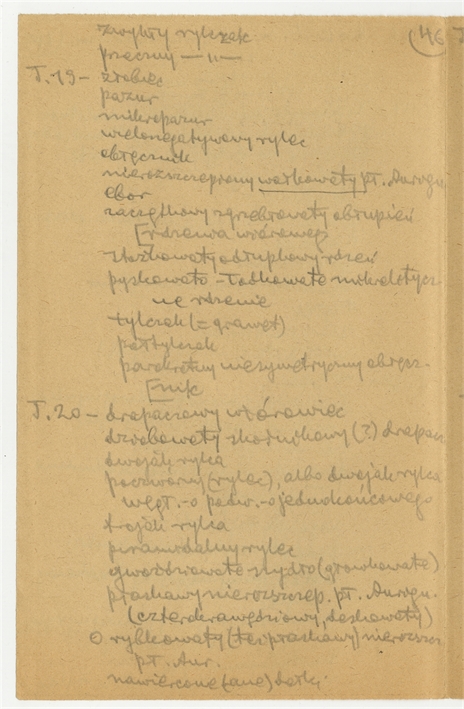 zwykły rylczek (46
przeczny — „ —
T.19 - żłobiec
pazur
mikropazur
wielonegatywowy rylec
obłęcznik
nierozszczepiony wałkowaty pt. Aurogn.
ebor
zaczątkowy zgrzebłowaty obłupień
[rdzenia wiórowego
stożkowaty odłupkowy rdzeń
pyskowato-łódkowate mikrolitycz-
ne rdzenie
tylczak (= grawet)
półtylczak
parokrotny niesymetryczny obłęcz-
[nik
T.20 - drapaczowy wiórowiec
dziobowaty skośnikowy (?) drapacz
dwojak rylca
poczwórny (rylec), albo dwojak rylca
węgł.-o podw.-o jednokońcowego
trojak rylca
piramidalny rylec
gwoździowate szydło (gronkowate)
ptaskawy nierozszczep. pt. Aurogn.
(czterokrawędziowy, deskowaty)
o rybkowaty (też ptaskawy) nierozszcz.
pt. Aur.
nawiercone (ane)